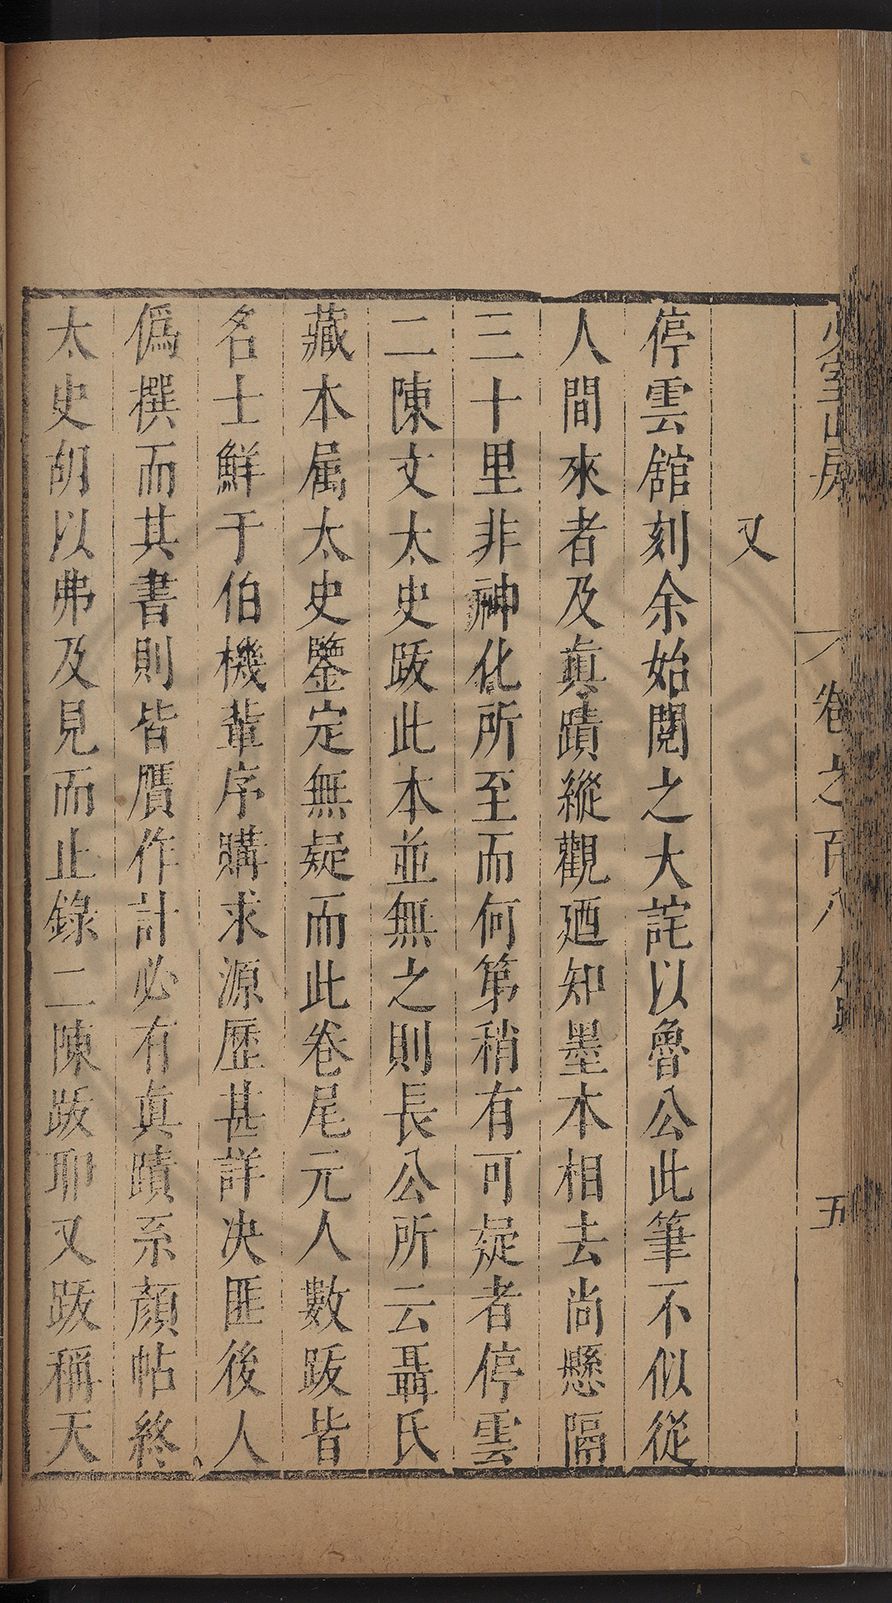 少室山房
卷之百八
五
又
停雲舘刻余始閱之大詫以魯公此筆不似從
人間來者及眞蹟縱觀廼知墨本相去尚懸隔
三十里非神化所至而何第稍有可疑者停雲
二陳文太史跋此本並無之則長公所云聶氏
藏本属太史鑒定無疑而此卷尾元人數跋皆
名士鮮于伯機輩序購求源歷甚詳决匪後人
僞撰而其書則皆贋作計必有眞蹟系顔帖終
太史胡以弗及見而止錄二陳跋耶又跋稱天